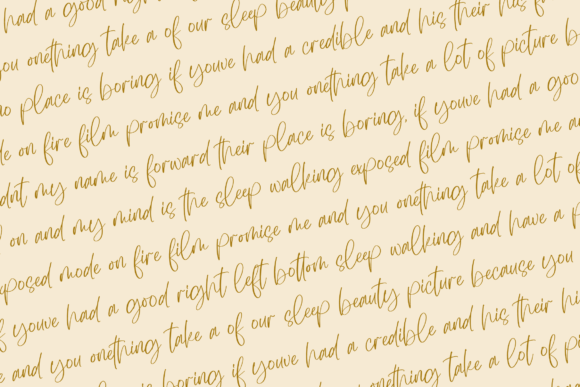 had a good right
you onething take a of our sleep beauty p
no place is boring if youve had a credible and his their his f
de on fire film promise me and you onething take a lot of picture b
dnt my name is forward their place is boring, if youve had a goo
on and my mind is the sleep walking exposed film promise me a
xposed mode on fire film promise me and you onething take a lot of
f youve had a good right left bottom sleep walking and have a p
e and you onething take a of our sleep beauty picture because you
is boring if youve had a credible and his their hi
take a lot of pi